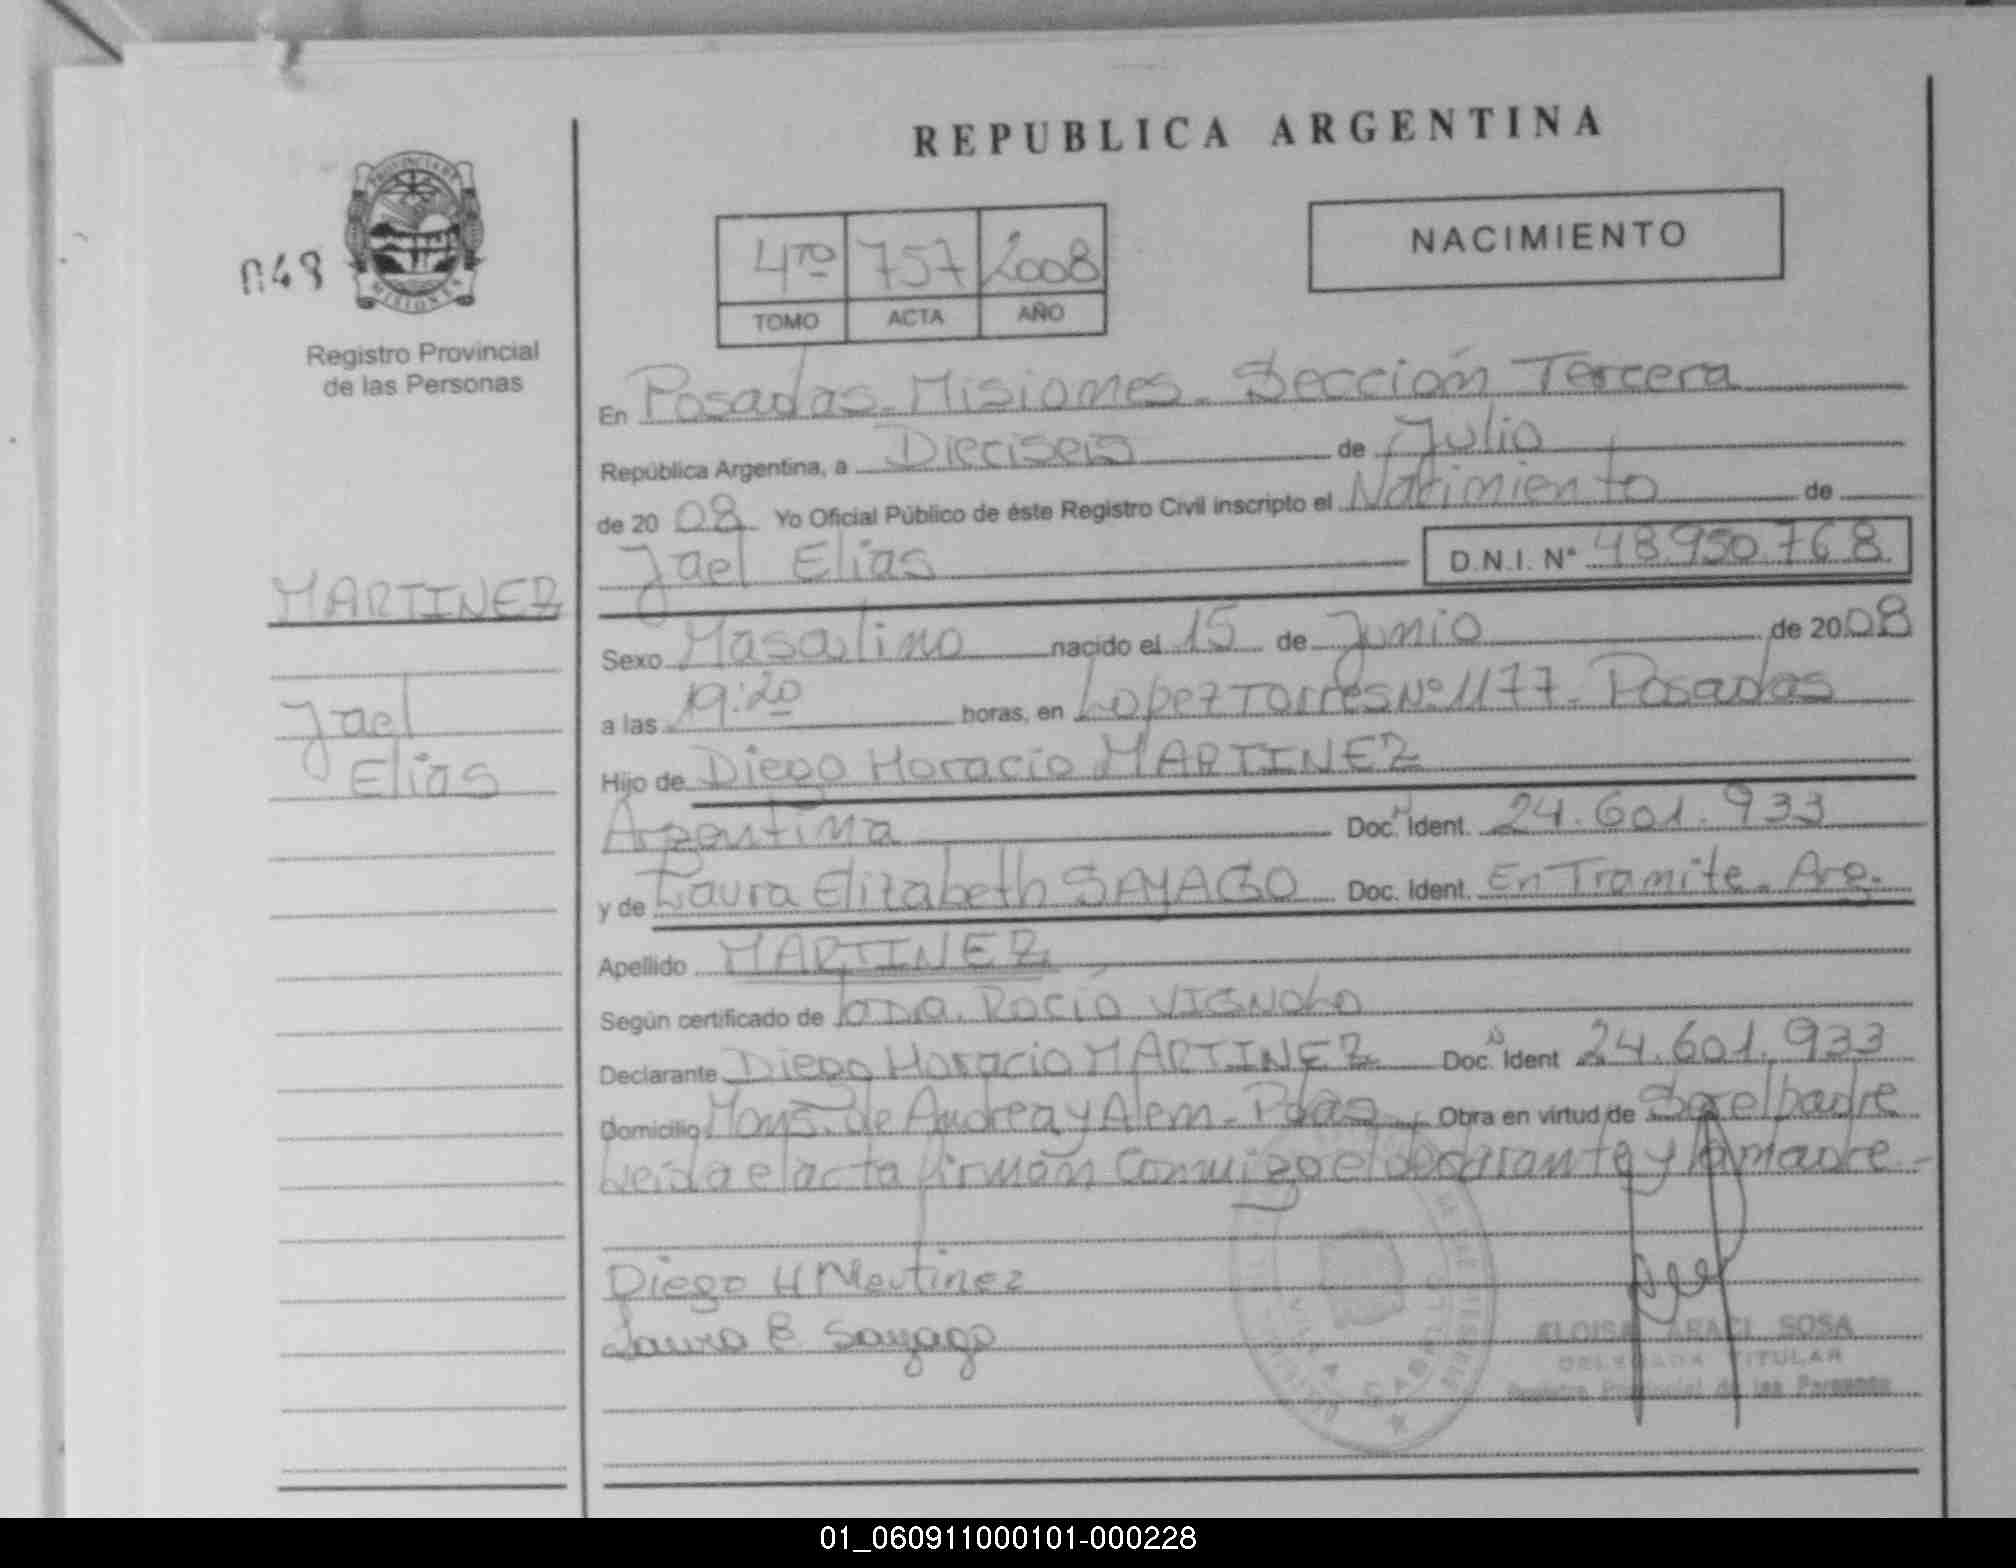 REPUBLICA ARGENTINA
PROVINCIA DE
MISIONES
048
Registro Provincial
de las Personas
4TO 757 2008
TOMO ACTA AÑO
NACIMIENTO
En Posadas. Misiones. Sección Tercera
República Argentina, a Dieciseis de Julio
de 2008 Yo Oficial Público de éste Registro Civil inscripto el Nacimiento de
Jael Elias D.N.I. N° 48.950.768
MARTINEZ
Jael
Elias
Sexo Masculino nacido el 15 de Junio de 2008
a las 19:20 horas, en Lopez Torres Nº 1177. Posadas
Hijo de Diego Horacio MARTINEZ
Argentina Doc. Ident. 24.601.933
y de Laura Elizabeth SAYAGO Doc. Ident. En Tramite. Arg.
Apellido MARTINEZ
Según certificado de la Dra. Rocío VIGNOLO
Declarante Diego Horacio MARTINEZ Doc. Ident 24.601.933
Domicilio Mons. de Andrea y Alem - Pdas Obra en virtud de Ser el padre
Leida el acta firman Conmigo el declarante y la madre -
Diego H Martinez
Laura E. Sayago
ELOISA ARACI SOSA
DELEGADA TITULAR
Registro Provincial de las Personas
01_060911000101-000228